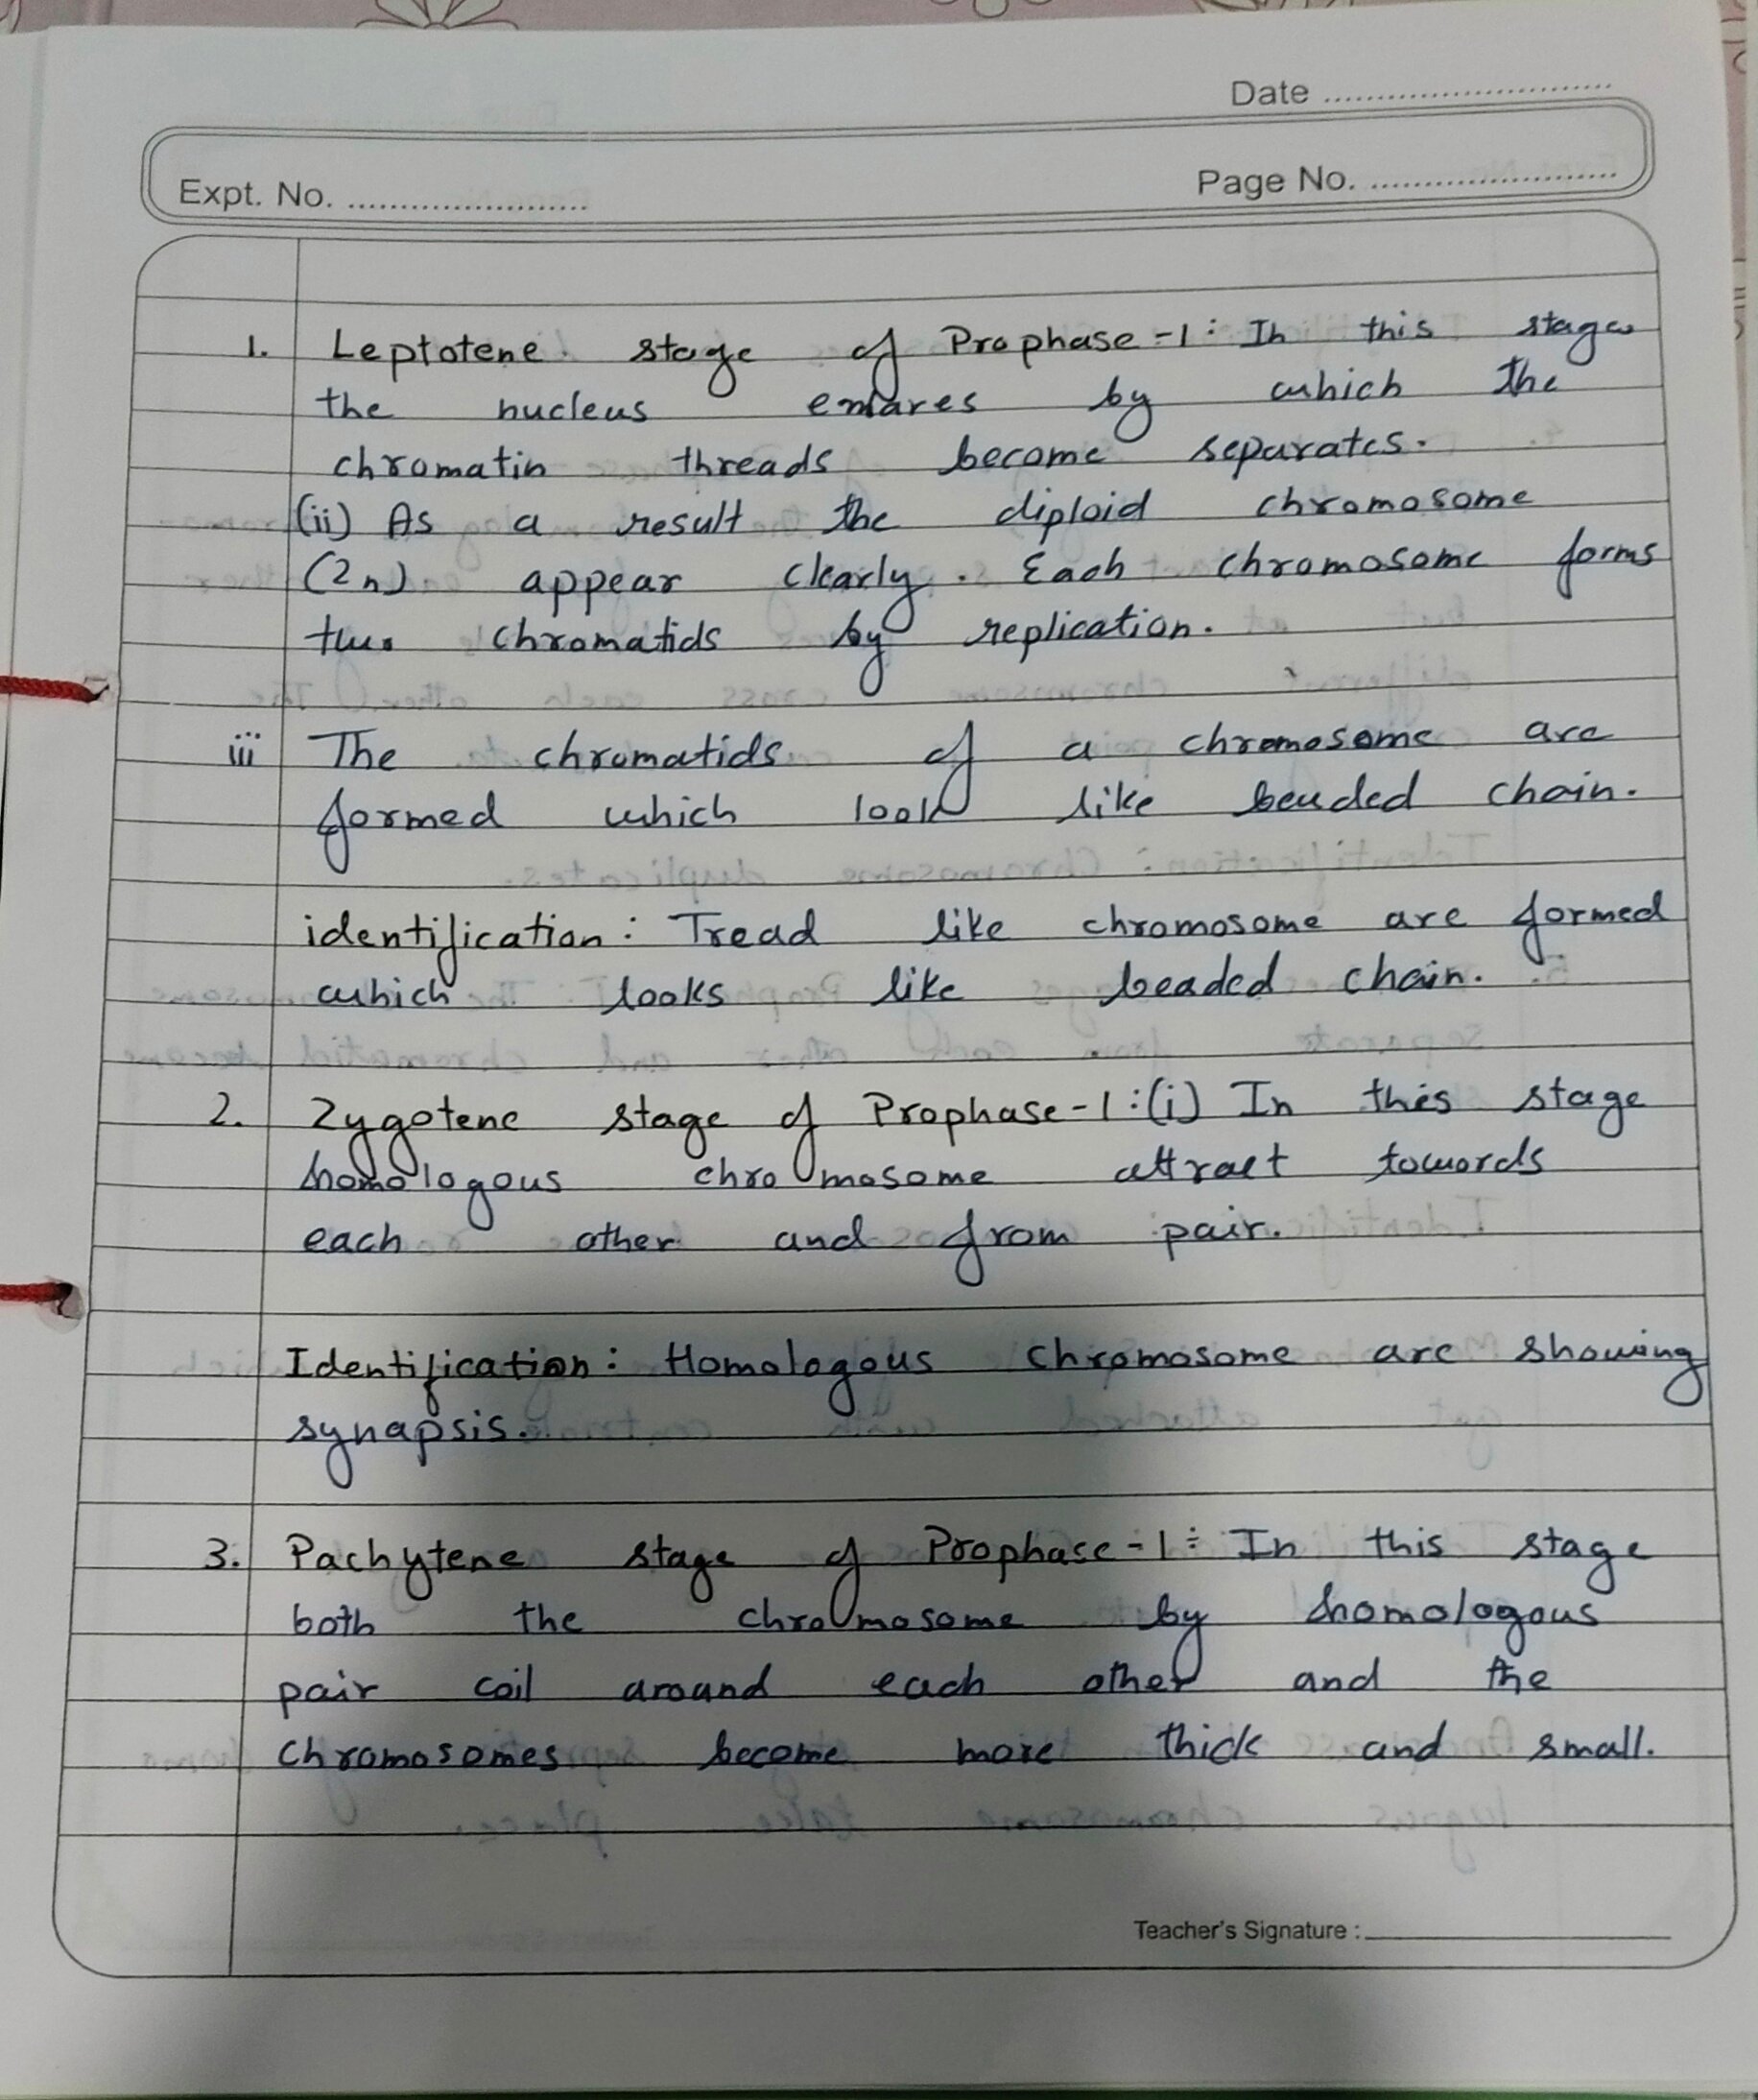 Date
Expt. No. Page No.
1. Leptotene stage of Prophase-1: In this stage
the nucleus by which the
chromatin threads become separates.
(ii) As a result the diploid chromosome
(2n) appear clearly. Each chromosome forms
two chromatids by replication.
iii The chromatids of a chromosome are
formed which look like beaded chain.
identification: Tread like chromosome are formed
which looks like beaded chain.
2. Zygotene stage of Prophase-1:(i) In this stage
homologous chromosome attract towards
each other and from pair.
Identification: Homologous Chromosome are showing
synapsis.
3. Pachytene stage of Prophase-1: In this stage
both the chromosome by homologous
pair coil around each other and the
chromosomes become more thick and small.
Teacher's Signature :